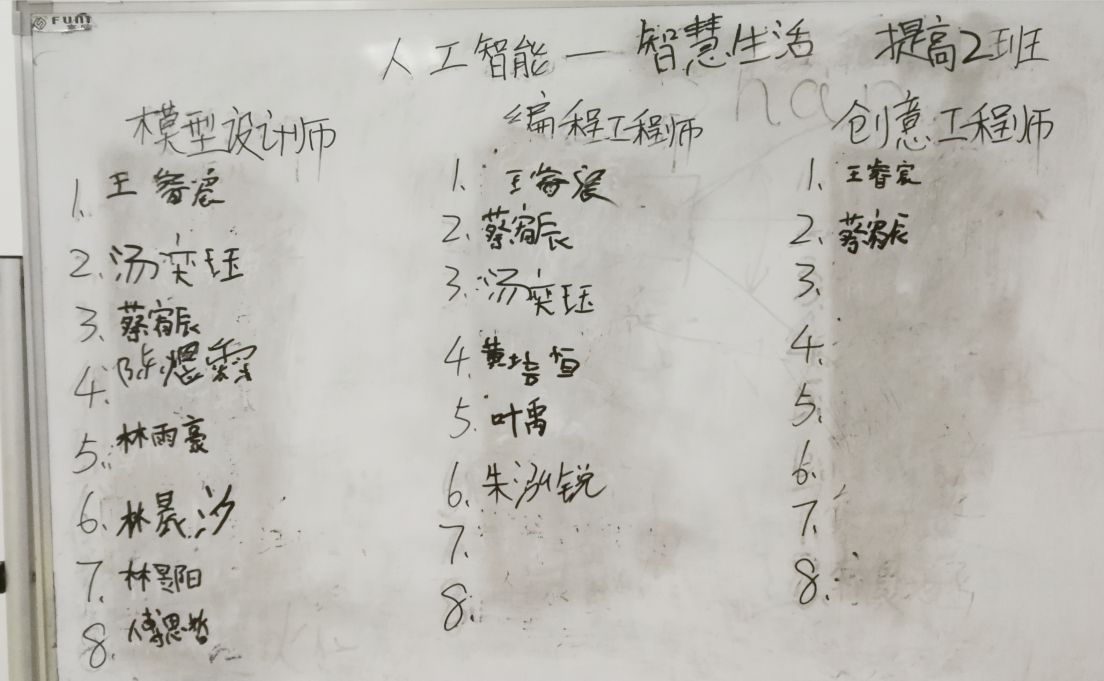 FUNT
人工智能—智慧生活 提高2班
模型设计师
1. 王睿宸
2. 汤奕珏
3. 蔡宥辰
4. 陈煜霖
5. 林雨豪
6. 林晟汐
7. 林景阳
8. 傅思哲
编程工程师
1. 王睿宸
2. 蔡宥辰
3. 汤奕珏
4. 黄培恒
5. 叶禹
6. 朱泓锐
7.
8.
创意工程师
1. 王睿宸
2. 蔡宥辰
3.
4.
5.
6.
7.
8.